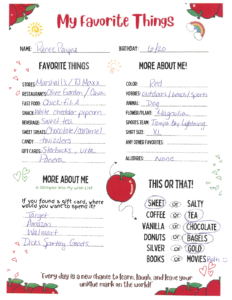 My Favorite Things
NAME: Renee Payne BIRTHDAY: 6/20
FAVORITE THINGS
STORES: Marshall's / TJ Maxx
RESTAURANTS: Olive Garden / Cava
FAST FOOD: Chick-fil-A
SNACK: white cheddar popcorn
BEVERAGE: Sweet tea
SWEET TREATS: Chocolate/caramel
CANDY: twizzlers
GIFT CARDS: Starbucks, Ulta,
Panera
MORE ABOUT ME!
COLOR: Red
HOBBIES: outdoors / beach / sports
ANIMAL: Dog
FLOWER/PLANT: Magnolia
SPORTS TEAM: Tampa Bay Lightning
SHIRT SIZE: XL
ANY OTHER FAVORITES:
ALLERGIES: None
MORE ABOUT ME
If you found a gift card, where would you want to spend it?
Target
Amazon
Walmart
Dicks Sporting Goods
THIS OR THAT!
SWEET OR SALTY
COFFEE OR TEA
VANILLA OR CHOCOLATE
DONUTS OR BAGELS
SILVER OR GOLD
BOOKS OR MOVIES
Every day is a new chance to learn, laugh, and leave your
unique mark on the world!